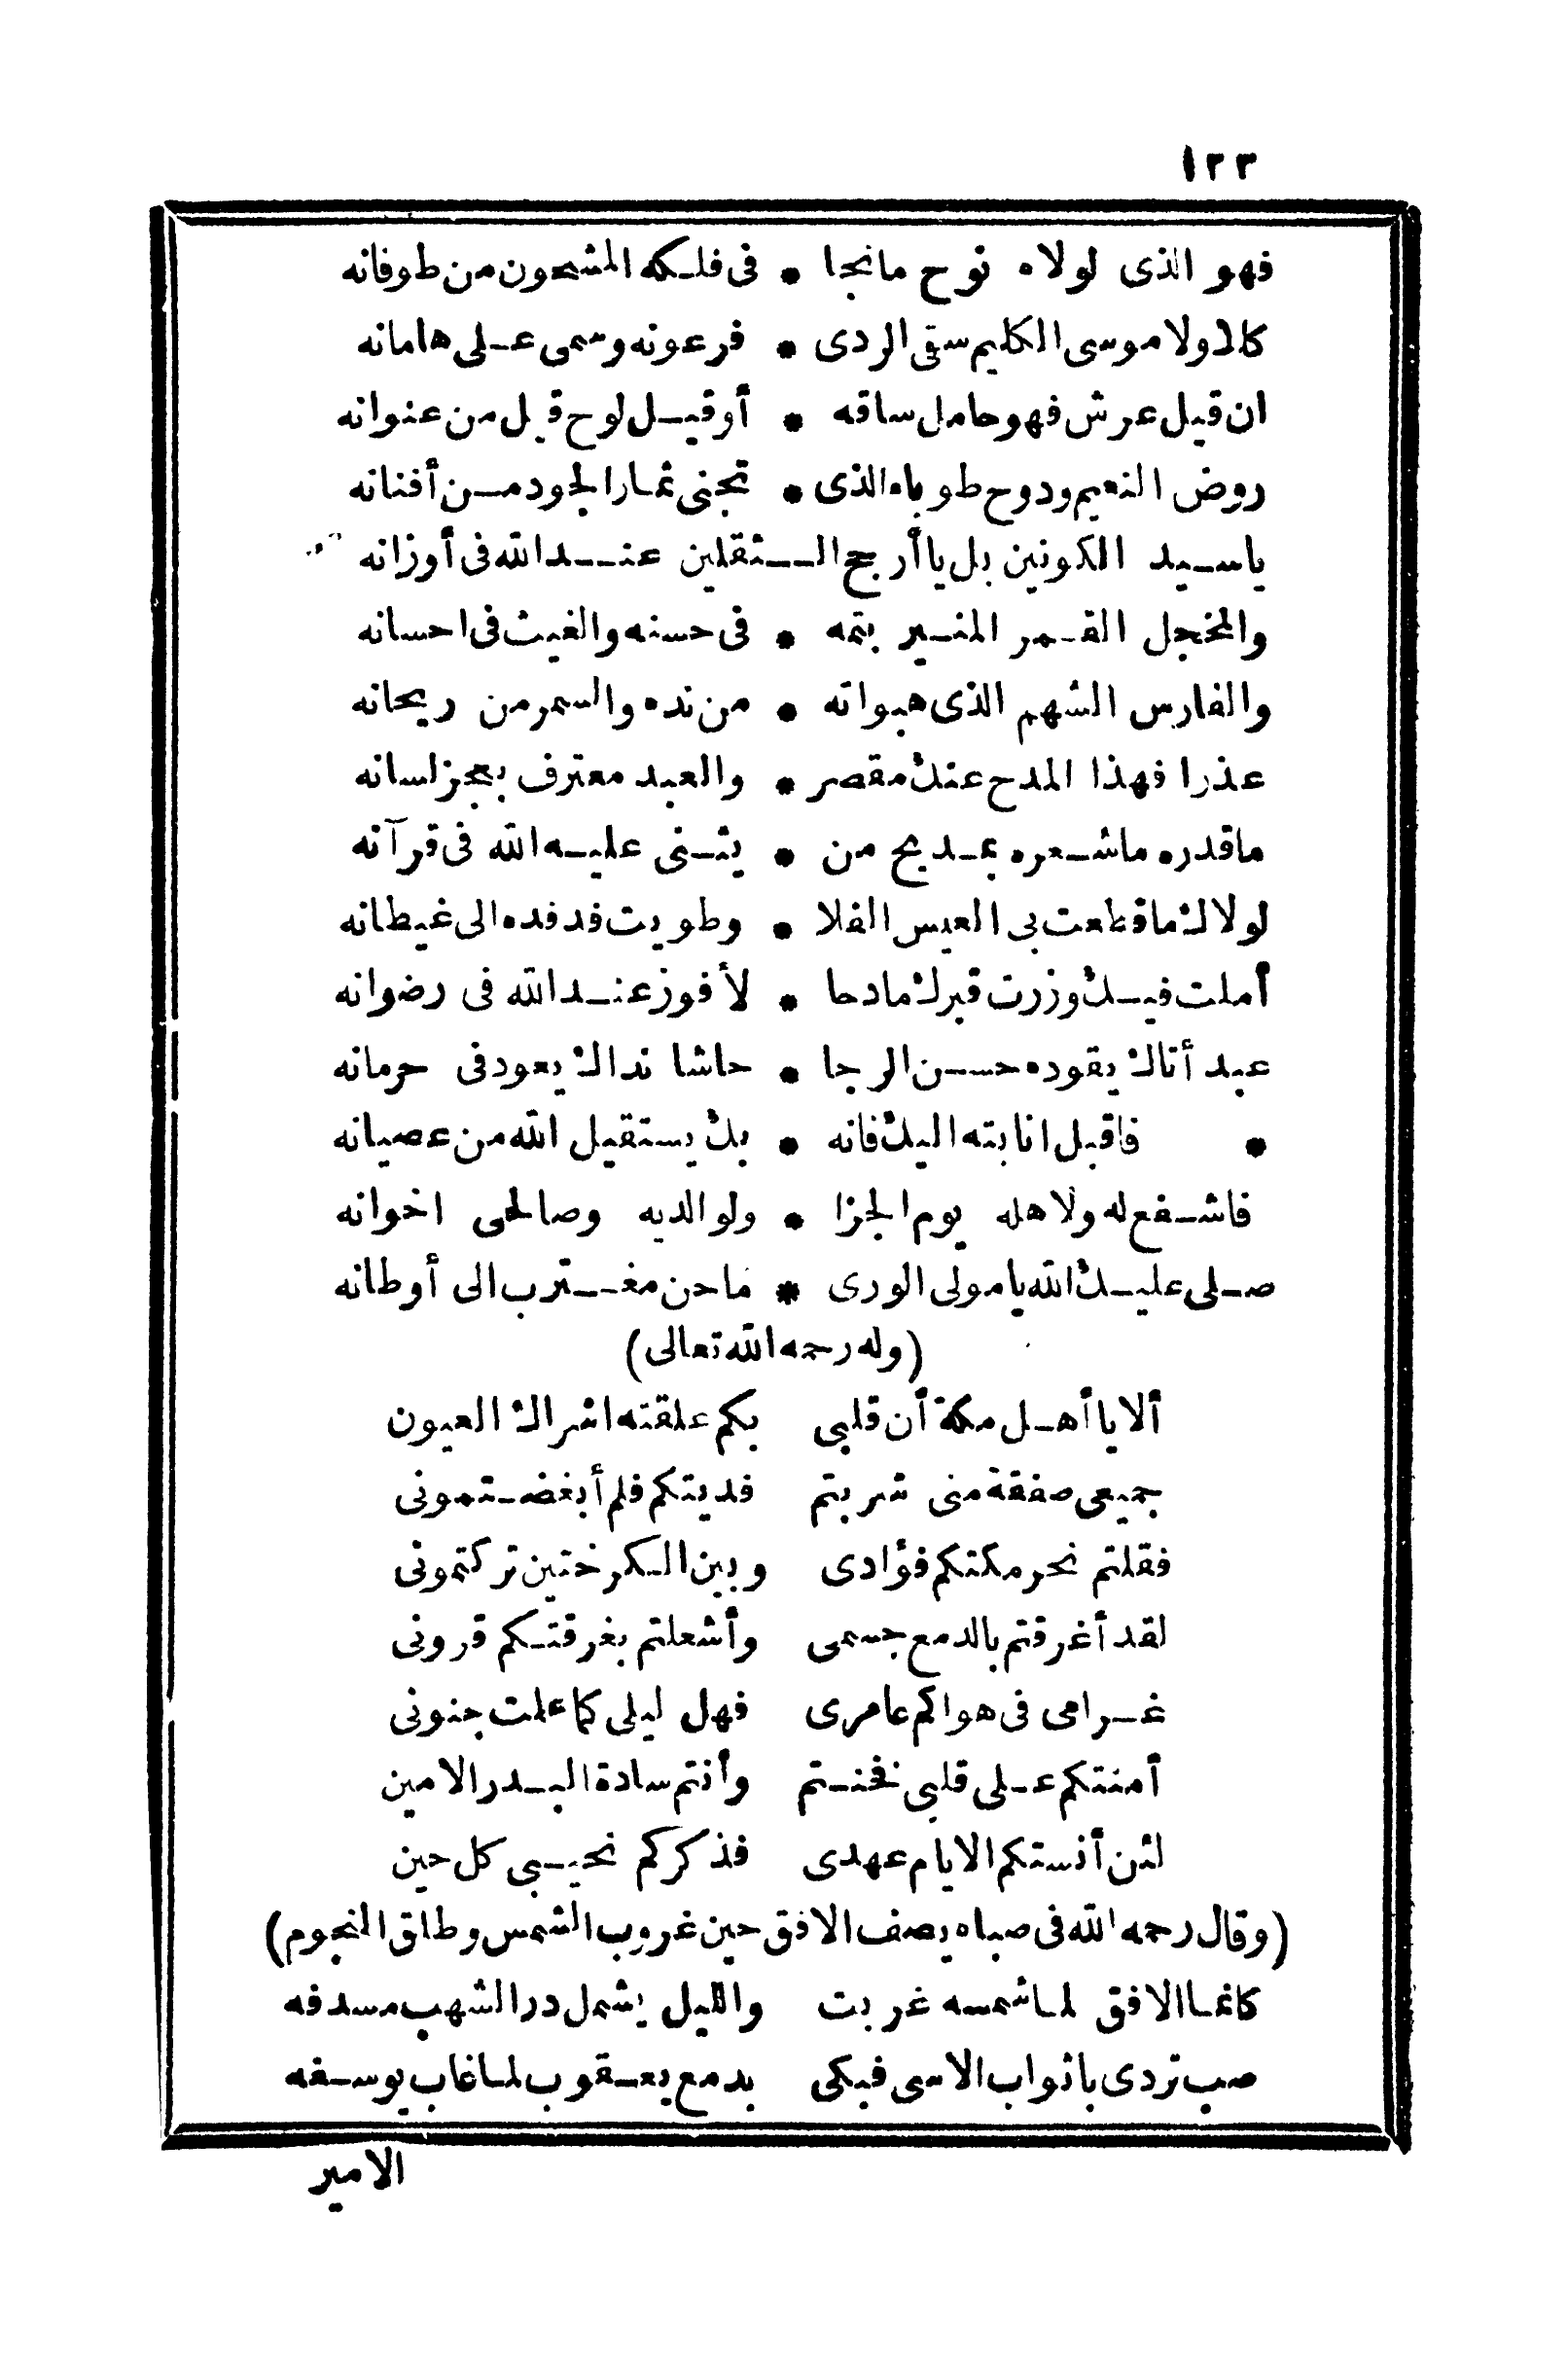 ١٢٣
فهو الذى لولاه نوح مانجا * فى فلكه المشحون من طوفانه
كلا ولا موسى الكليم سقى الردى * فرعونه وسمى على هامانه
ان قيل عرش فهو حامل ساقه * أو قيل لوح قيل من عنوانه
روض النعيم ودوح طوباه الذى * تجنى ثمار الجود من أفنانه
ياسيد الكونين بل يا أرجح الثقلين عند الله فى أوزانه
والمخجل القمر المنير بتمه * فى حسنه والغيث فى احسانه
والفارس الشهم الذى هبواته * من نده والسمر من ريحانه
عذرا فهذا المدح عنك مقصر * والعبد معترف بعجز لسانه
ماقدره ماشعره بمديح من * يثنى عليه الله فى قرآنه
لولاك ماقطعت بى العيس الفلا * وطويت فدفده الى غيطانه
أملت فيك وزرت قبرك مادحا * لأفوز عند الله فى رضوانه
عبد أتاك يقوده حسن الرجا * حاشا نداك يعود فى حرمانه
* فاقبل انابته اليك فانه * بك يستقيل الله من عصيانه
فاشفع له ولاهله يوم الجزا * ولوالديه وصالحى اخوانه
صلى عليك الله يامولى الورى * ماحن مغترب الى أوطانه
(وله رحمه الله تعالى)
ألا يا أهل مكة أن قلبى بكم علقته اشراك العيون
جميعى صفقة منى شريتم فديتكم فلم أبغضتمونى
فقلتم نحر مكتكم فؤادى وبين الكرختين تركتمونى
لقد أغرقتم بالدمع جسمى وأشعلتم بغرقتكم قرونى
غرامى فى هواكم عامرى فهل ليلى كما علمت جنونى
أمنتكم على قلبى فخنتم وأنتم سادة البلد الامين
لئن أنستكم الايام عهدى فذكركم نحيبى كل حين
(وقال رحمه الله فى صباه يصف الافق حين غروب الشمس وطلق النجوم)
كانما الافق لما شمسه غربت والليل يشمل در الشهب مسدفه
صب تردى باثواب الاسى فبكى بدمع يعقوب لما غاب يوسفه
الامير